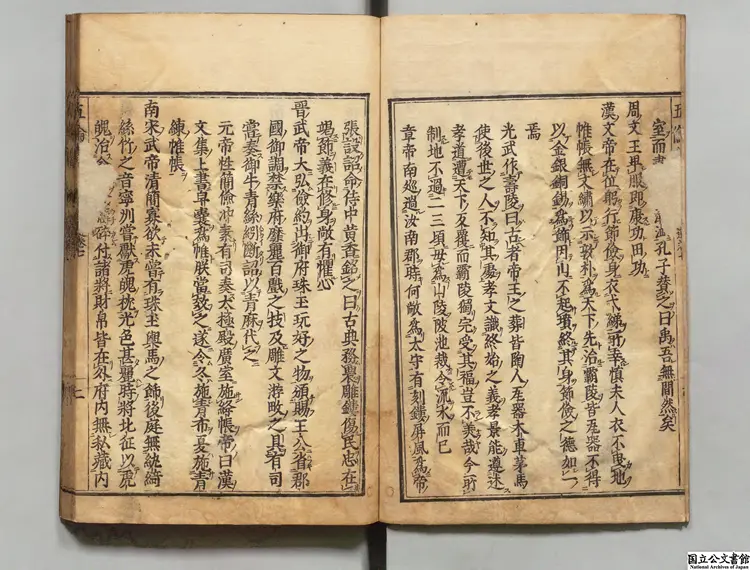 室而盡
孔子贊之曰禹吾無間然矣
周文王卑服即康功田功
漢文帝在位躬行節儉身衣弋綈所幸慎夫人衣不曳地
帷帳無文繡以示敦朴為天下先治霸陵皆瓦器不得
以金銀銅錫為飾因山不起墳終其身節儉之德如一
焉
光武作壽陵曰古者帝王之葬皆陶人瓦器木車茅馬
使後世之人不知其處孝文識終始之義孝景能遵述
孝道遭天下反覆而霸陵獨完受其福豈不美哉今所
制地不過二三頃毋為山陵陂池裁令流水而已
章帝南廵過汝南郡時何敞為太守有刻鏤屏風為帝
張設詔命侍中黄香銘之曰古典務農雕鏤傷民忠在
竭節義在修身敞有懼心
晉武帝大弘儉約出御府珠玉玩好之物頒賜王公省郡
國御調禁樂府靡麗百戲之技及雕文游畋之具有司
嘗奏御牛青絲紖斷詔以青麻代之
元帝性簡儉冲奏有司奏太極殿廣室施絳帳帝曰漢
文集上書皁囊為帷朕當效之遂令冬施青布夏施青
練帷帳
南宋武帝清簡寡欲未嘗有珠玉輿馬之飾後庭無紈綺
絲竹之音寧州嘗獻虎魄枕光色甚麗時將北征以虎
魄治金
碎付諸將財帛皆在外府内無私藏内
五倫
七
三
五倫
国立公文書館
National Archives of Japan